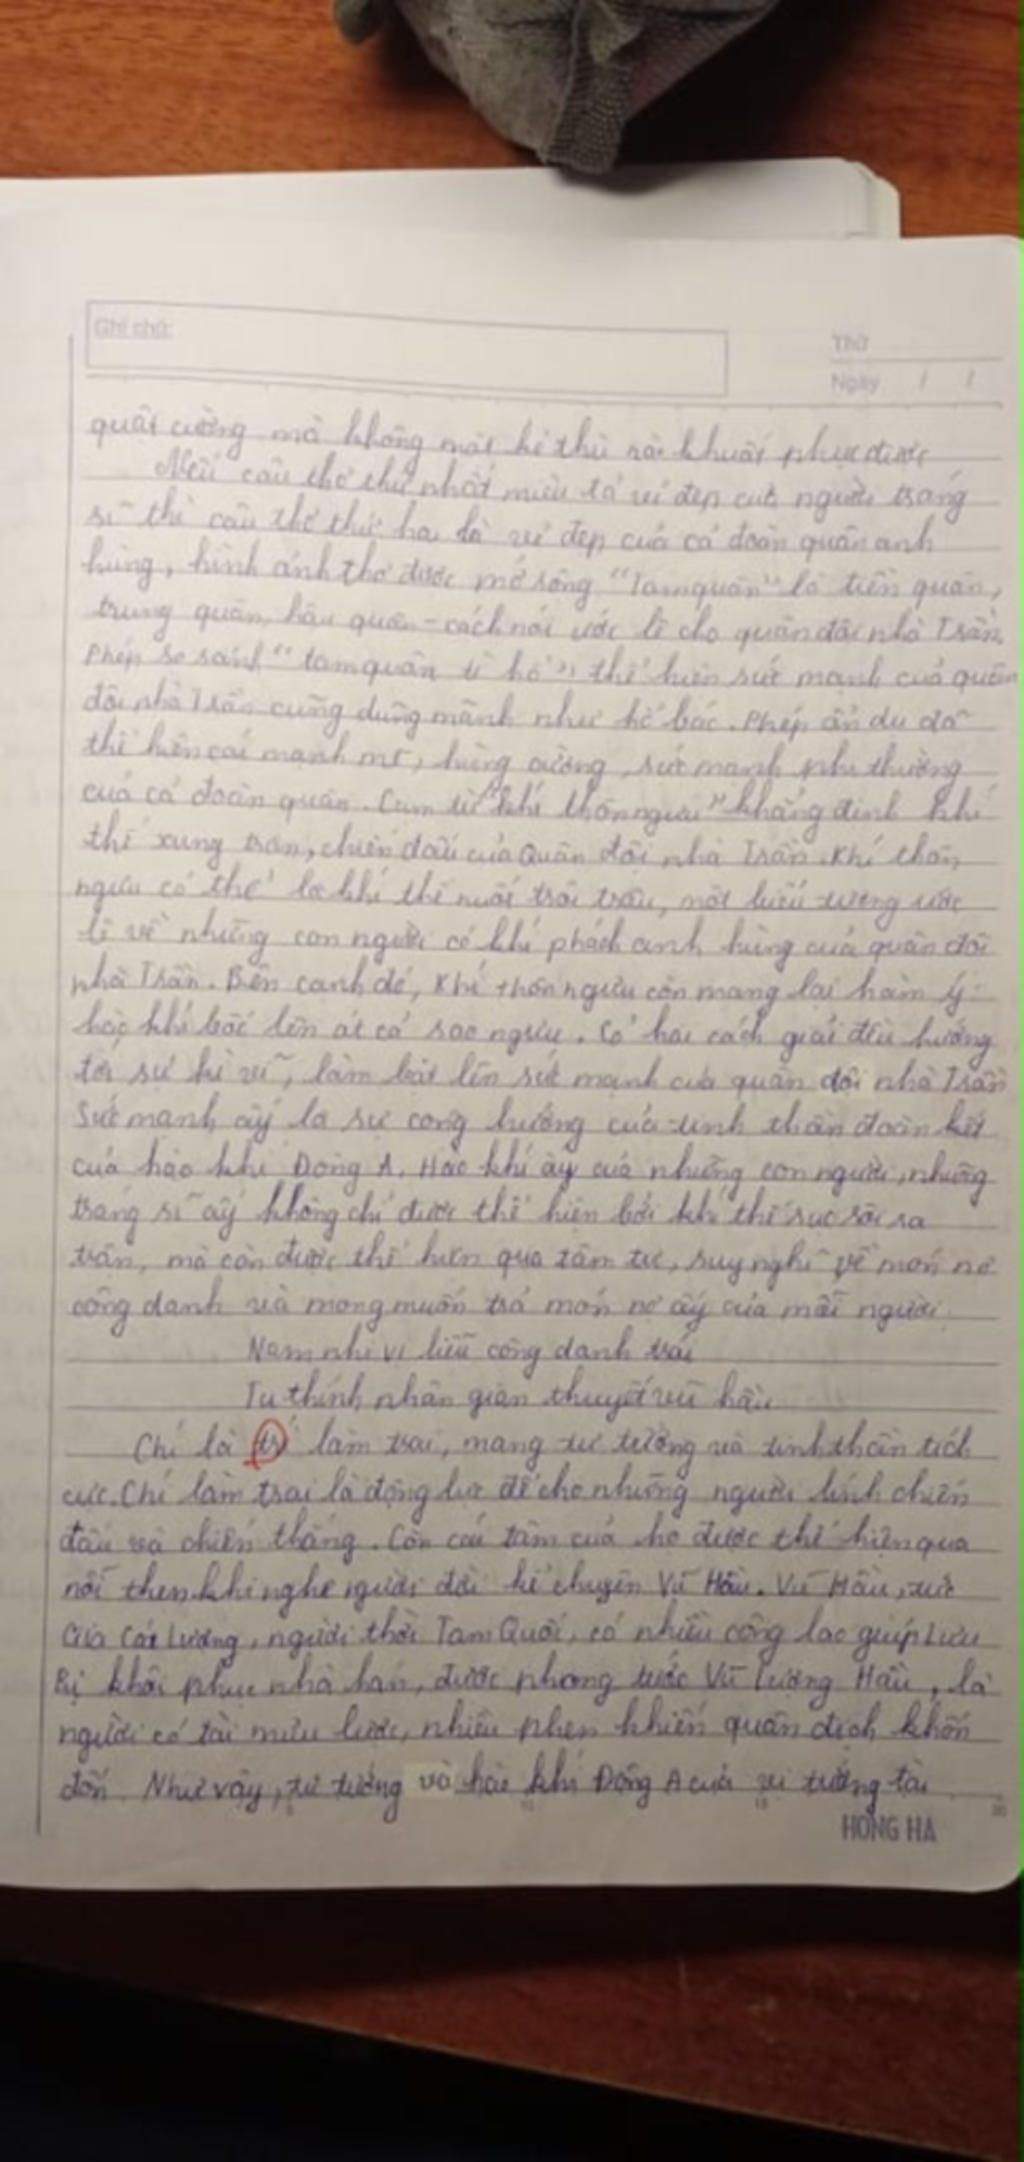 Ghi chú:
Thứ
Ngày / /
quật cường mà không một kẻ thù nào khuất phục được
Nếu câu thơ thứ nhất miêu tả vẻ đẹp của người tráng
sĩ thì câu thơ thứ hai là vẻ đẹp của cả đoàn quân anh
hùng, hình ảnh thơ được mở rộng "Tam quân" là tiền quân,
trung quân, hậu quân - cách nói ước lệ cho quân đội nhà Trần.
Phép so sánh "tam quân tì hổ" thể hiện sức mạnh của quân
đội nhà Trần cũng dũng mãnh như hổ báo. Phép ẩn dụ đã
thể hiện cái mạnh mẽ, hùng cường, sức mạnh phi thường
của cả đoàn quân. Cụm từ "khí thôn ngưu" khẳng định khí
thế xung trận, chiến đấu của Quân đội nhà Trần. Khí thôn
ngưu có thể là khí thế nuốt trôi trâu, một biểu tượng ước
lệ về những con người có khí phách anh hùng của quân đội
nhà Trần. Bên cạnh đó, Khí thôn ngưu còn mang lại hàm ý
hào khí bốc lên át cả sao ngưu. Cả hai cách giải đều hướng
tới sự kì vĩ, làm bật lên sức mạnh của quân đội nhà Trần
Sức mạnh ấy là sự cộng hưởng của tinh thần đoàn kết
của hào khí Đông A. Hào khí ấy của những con người, những
tráng sĩ ấy không chỉ được thể hiện bởi khí thế sục sôi ra
trận, mà còn được thể hiện qua tâm tư, suy nghĩ về món nợ
công danh và mong muốn trả món nợ ấy của mỗi người.
Nam nhi vị liễu công danh trái
Tu thính nhân gian thuyết vũ hầu
Chí là trí làm trai, mang tư tưởng và tinh thần tích
cực. Chí làm trai là động lực để cho những người lính chiến
đấu và chiến thắng. Còn cái tâm của họ được thể hiện qua
nỗi thẹn khi nghe người đời kể chuyện Vũ Hầu. Vũ Hầu, tức
Gia Cát Lượng, người thời Tam Quốc, có nhiều công lao giúp Lưu
Bị khôi phục nhà hán, được phong tước Vũ Lượng Hầu, là
người có tài mưu lược, nhiều phen khiến quân địch khốn
đốn. Như vậy, tư tưởng và hào khí Đông A của vị tướng tài
HONG HA